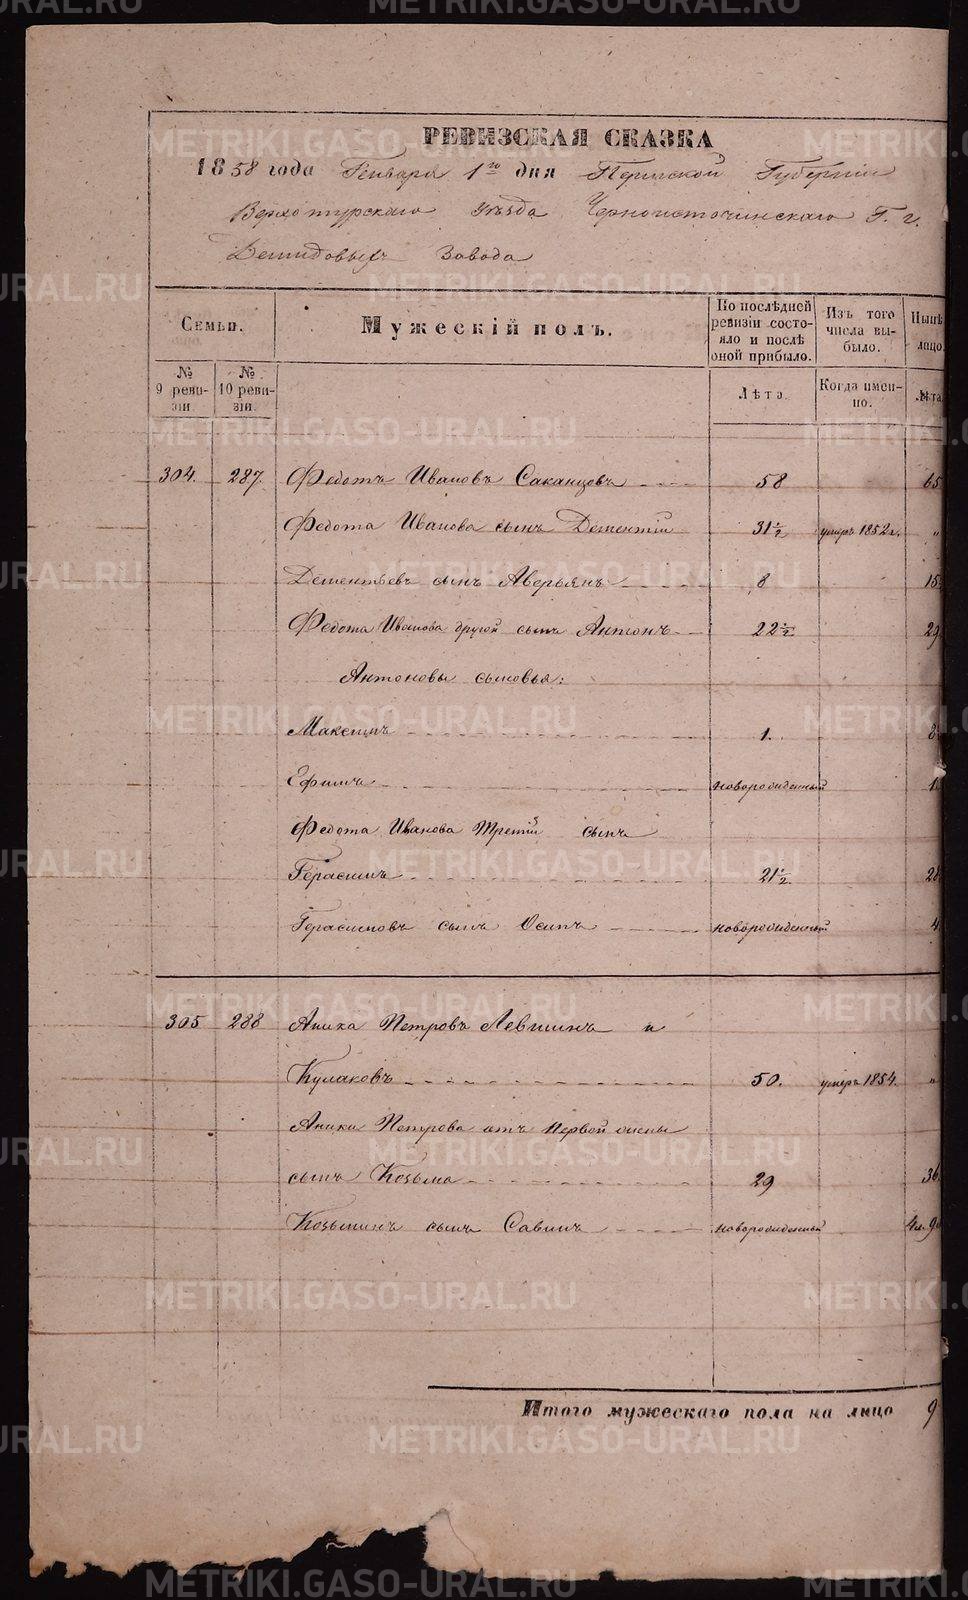 РЕВИЗСКАЯ СКАЗКА
1858 года Генваря 1го дня Пермской Губернии
Верхотурскаго Уѣзда Черноисточинскаго Г. г.
Демидовыхъ Завода
Семьи.
Мужескій полъ.
По послѣдней ревизіи состояло и послѣ оной прибыло.
Изъ того числа выбыло.
Нынѣ лицо.
№ 9 ревизіи.
№ 10 ревизіи.
Лѣта.
Когда именно.
Лѣта
304. 287. Федотъ Ивановъ Саканцовъ 58 65
Федота Иванова сынъ Дементій 31½ умеръ 1852 г. "
Дементьевъ сынъ Аверьянъ 8 15
Федота Иванова другой сынъ Антонъ 22½ 29
Антоновы сыновья:
Максимъ 1. 8
Ефимъ новорожденный 1
Федота Иванова Третій сынъ
Герасимъ 21½ 28
Герасимовъ сынъ Осипъ новорожденный 4
305 288 Аника Петровъ Левшинъ и
Кулаковъ 50. умеръ 1854. "
Аники Петрова отъ Первой жены
сынъ Козьма 29 36
Козьминъ сынъ Савинъ новорожденный
Итого мужескаго пола на лицо 9
METRIKI.GASO-URAL.RU